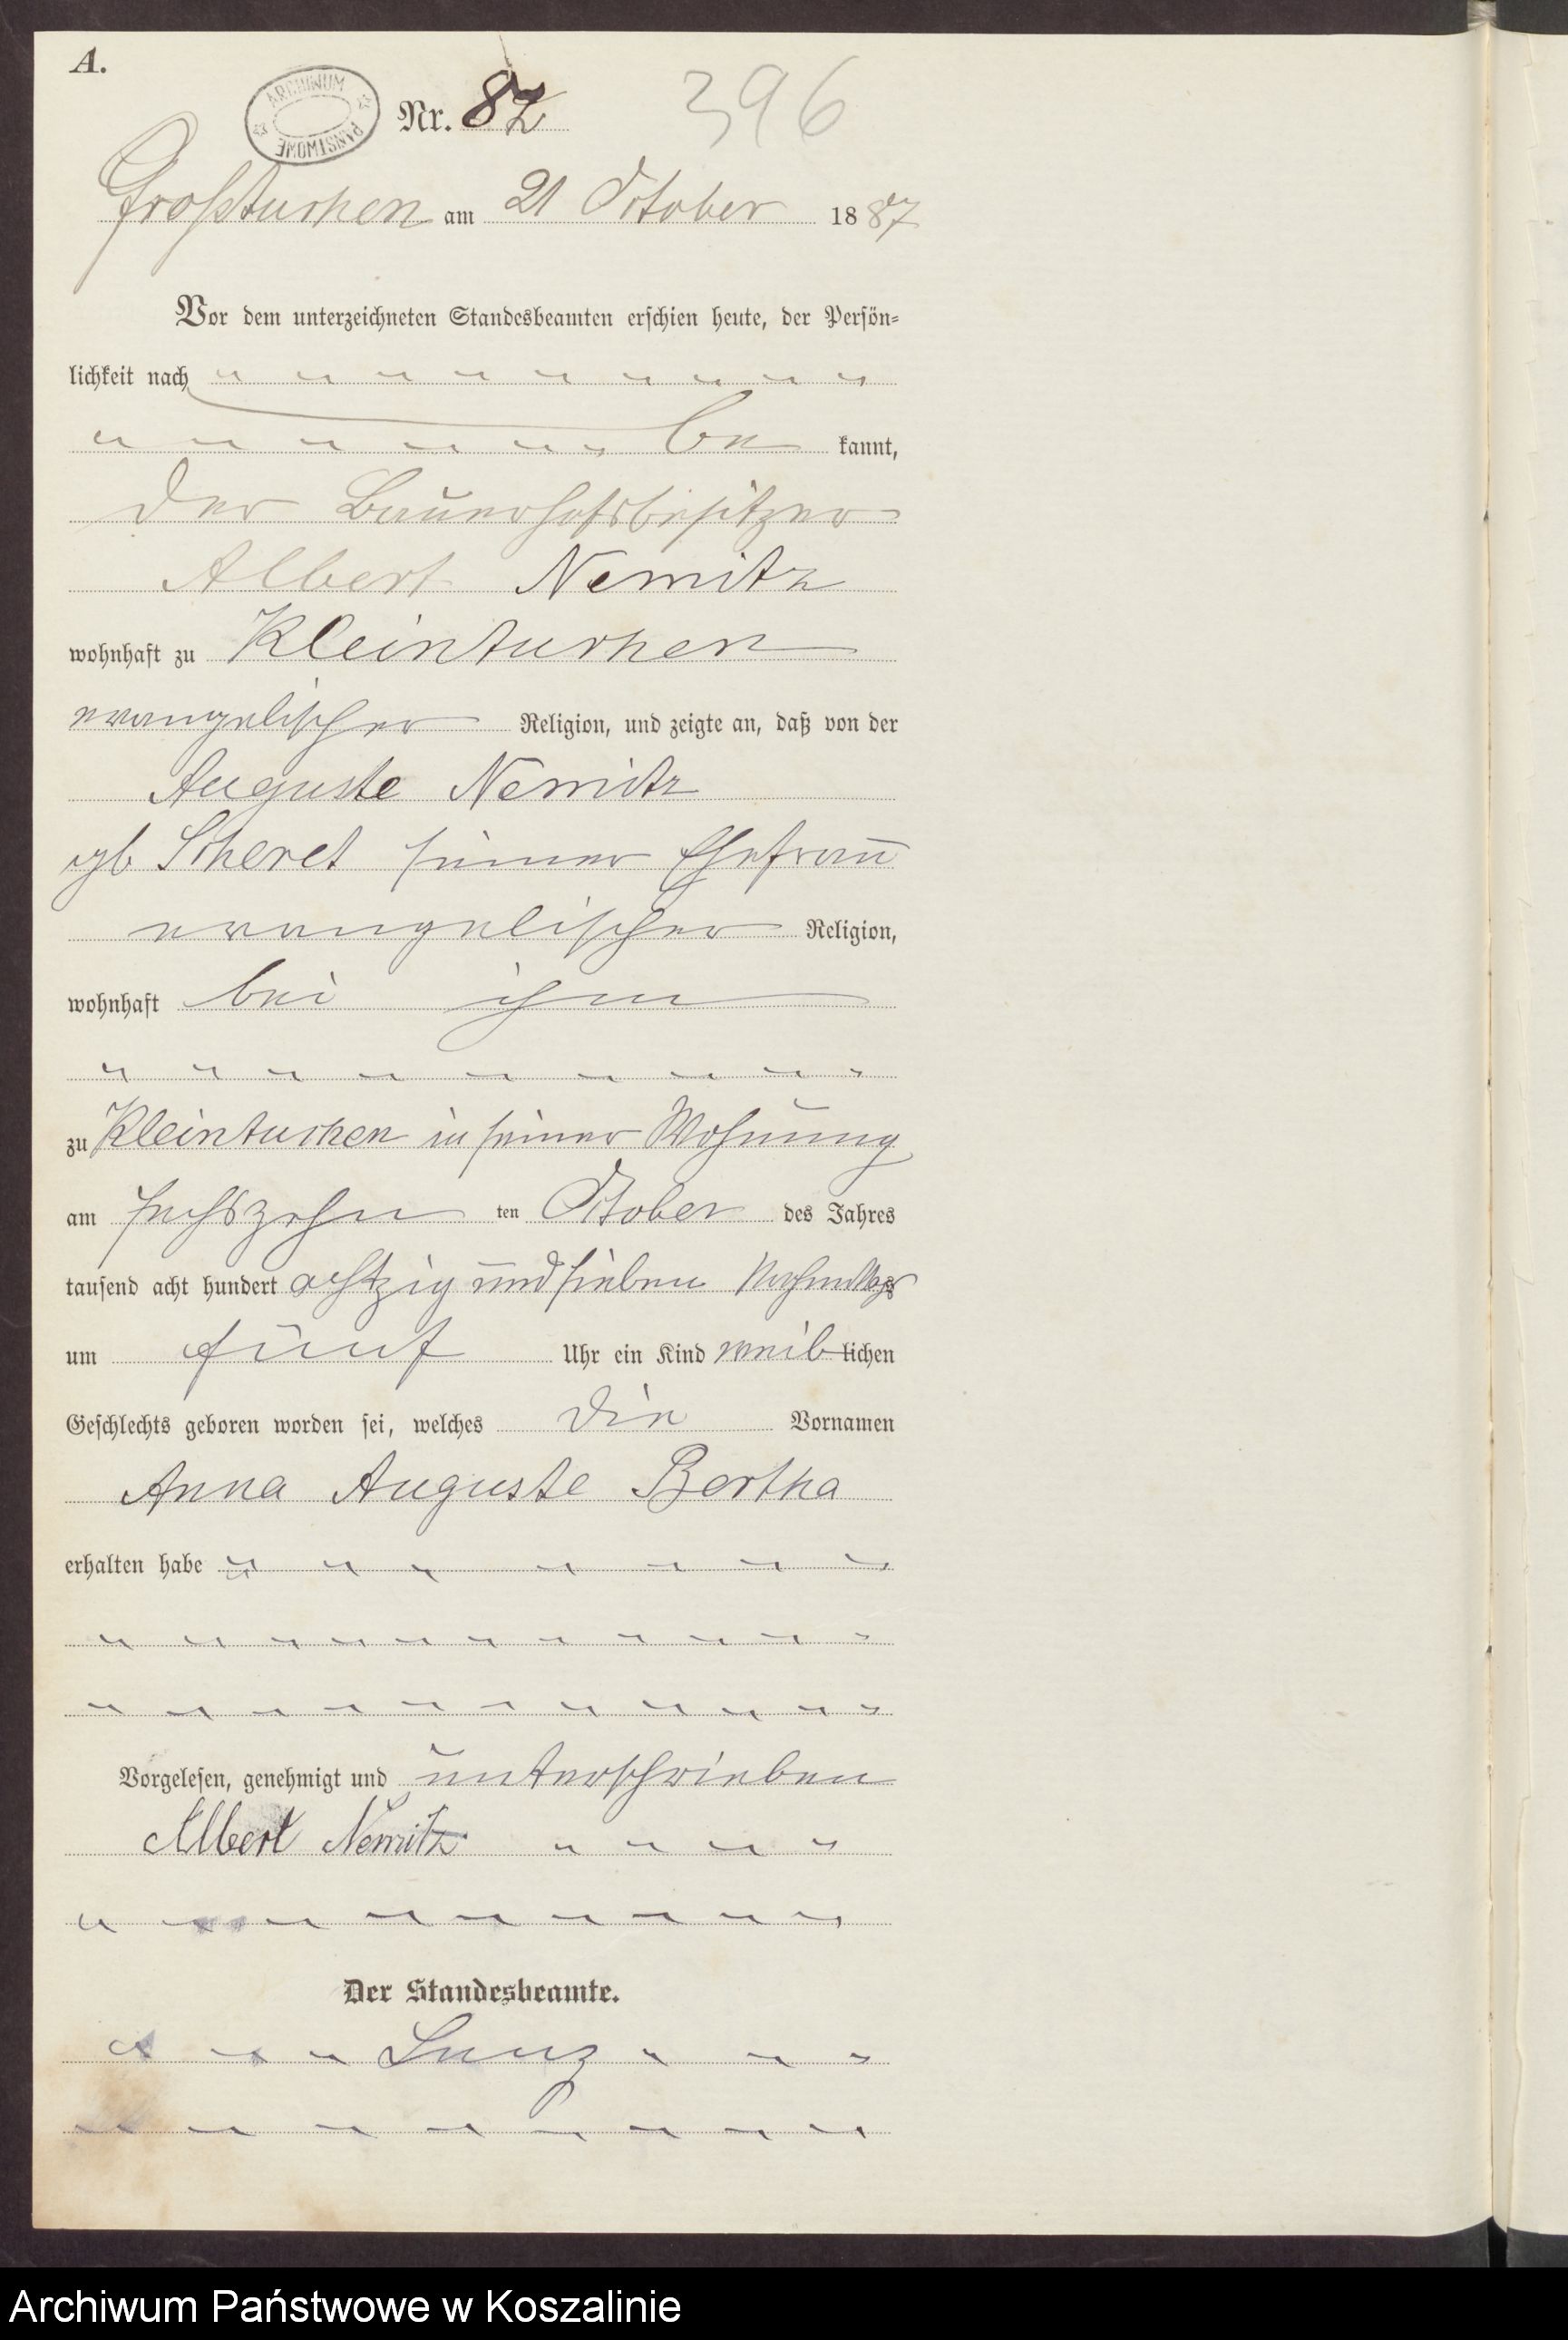 A.
ARCHIWUM PAŃSTWOWE
Nr. 82 396
Großtuchen am 21 October 1887
Vor dem unterzeichneten Standesbeamten erschien heute, der Persön-
lichkeit nach
be kannt,
der Bauerhofsbesitzer
Albert Nemitz
wohnhaft zu Kleintuchen
evangelischer Religion, und zeigte an, daß von der
Auguste Nemitz
gb seiner Ehefrau
evangelischer Religion,
wohnhaft bei ihm
zu Kleintuchen in seiner Wohnung
am sechszehn ten October des Jahres
tausend acht hundert achtzig und sieben Nachmittags
um fünf Uhr ein Kind weiblichen
Geschlechts geboren worden sei, welches die Vornamen
Anna Auguste Bertha
erhalten habe
Vorgelesen, genehmigt und unterschrieben
Albert Nemitz
Der Standesbeamte.
Archiwum Państwowe w Koszalinie